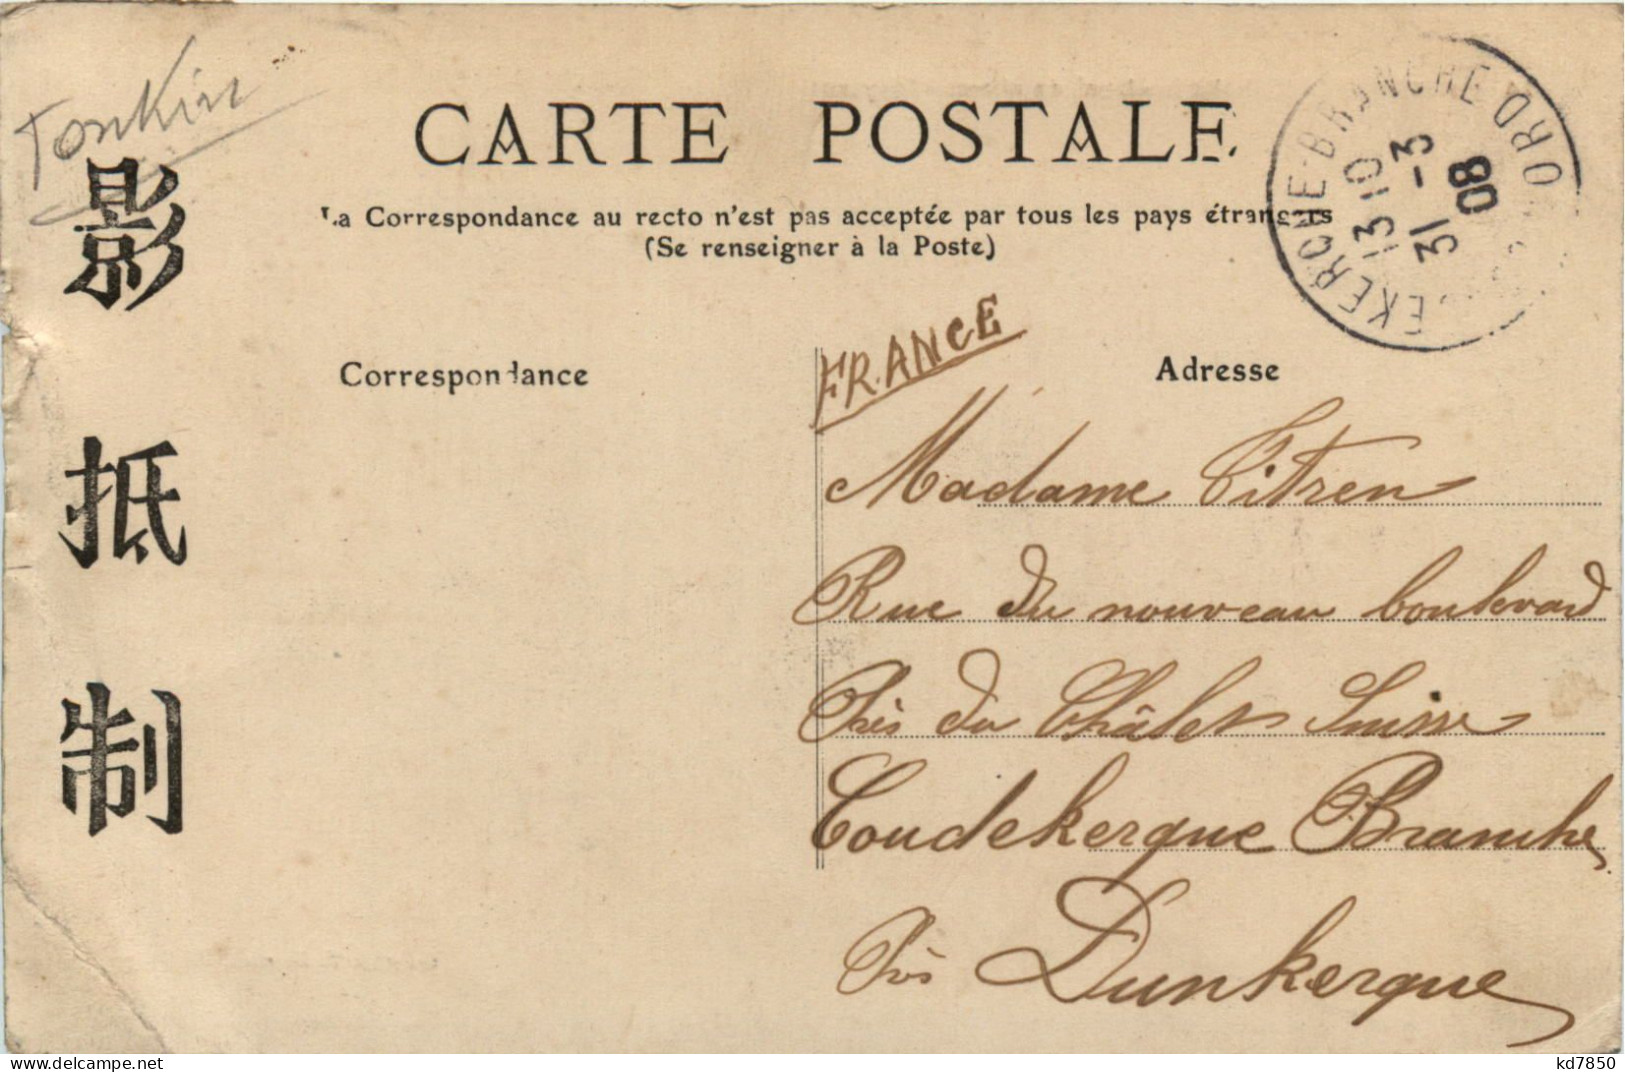 Tonkin
影
抵
制
CARTE POSTALE
La Correspondance au recto n'est pas acceptée par tous les pays étrangers
(Se renseigner à la Poste)
EKERQUE-BRANCHE NORD
13 10
31 -3
08
Correspondance
FRANCE
Adresse
Madame Titren
Rue du nouveau boulevard
Près du Châlet Suisse
Coudekerque Branche
Près Dunkerque
www.delcampe.net
kd7850